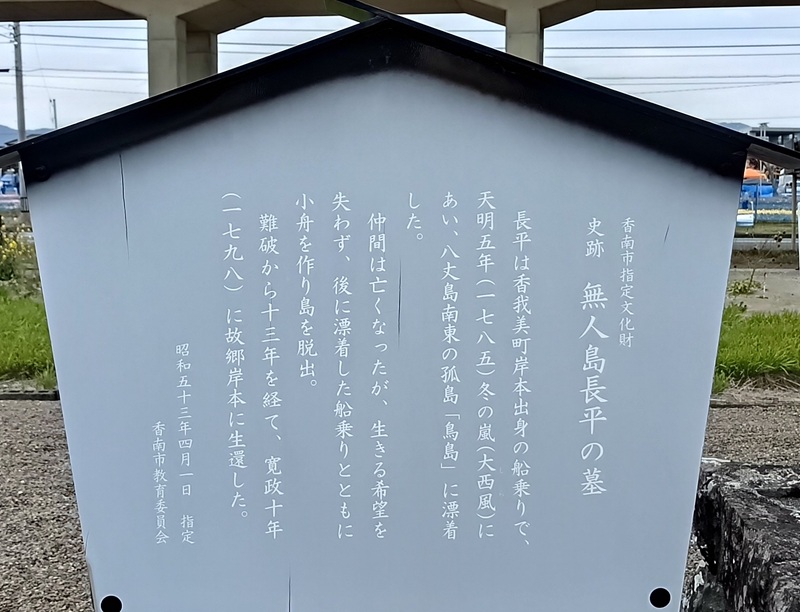 香南市指定文化財
史跡　無人島長平の墓
長平は香我美町岸本出身の船乗りで、
天明五年(一七八五)冬の嵐(大西風)に
あい、八丈島南東の孤島「鳥島」に漂着
した。
仲間は亡くなったが、生きる希望を
失わず、後に漂着した船乗りとともに
小舟を作り島を脱出。
難破から十三年を経て、寛政十年
(一七九八)に故郷岸本に生還した。
昭和五十三年四月一日　指定
香南市教育委員会